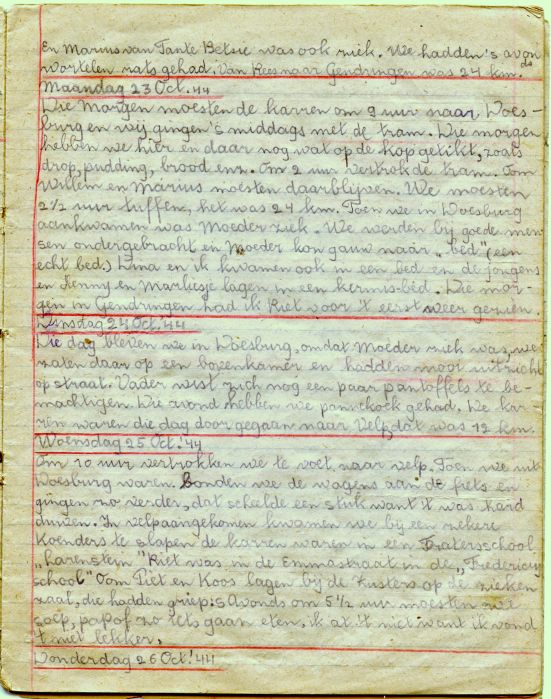 En Marius van Tante Betsie was ook ziek. We hadden 's avonds
wortelen rats gehad. Van Rees naar Gendringen was 24 km.
Maandag 23 Oct. 44
Die Morgen moesten de karren om 9 uur naar Does-
burg en wij gingen 's middags met de tram. Die morgen
hebben we hier en daar nog wat op de kop getikt, zoals
drop, pudding, brood enz. Om 2 uur vertrok de tram. Oom
Willem en Marius moesten daar blijven. We moesten
2 1/2 uur tuffen, het was 24 km. Toen we in Doesburg
aankwamen was Moeder ziek. We werden bij goede men-
sen ondergebracht en Moeder kon gauw naar „bed" (een
echt bed.) Dina en ik kwamen ook in een bed en de jongens
en Henny en Marliesje lagen in een kermis-bed. Die mor-
gen in Gendringen had ik Riet voor 't eerst weer gezien.
Dinsdag 24 Oct. 44
Die dag bleven we in Doesburg, omdat Moeder ziek was, we
zaten daar op een bovenkamer en hadden mooi uitzicht
op straat. Vader wist zich nog een paar pantoffels te be-
machtigen. Die avond hebben we pannekoek gehad. De kar-
ren waren die dag door gegaan naar Velp, dat was 12 km.
Woensdag 25 Oct. '44
Om 10 uur vertrokken we te voet, naar velp. Toen we uit
Doesburg waren bonden we de wagens aan de fiets en
gingen zo verder, dat scheelde een stuk want 't was hard
duwen. In velp aangekomen kwamen we bij een zekere
Koenders te slapen de karren waren in een Fratersschool
„Larenstein" Riet was in de Emmastraat in de „Fredericus
school" Oom Piet en Koos lagen bij de Zusters op de zieken
zaal, die hadden griep. 's Avonds om 5 1/2 uur moesten we
soep, pap of zo iets gaan eten, ik at 't niet want ik vond
't niet lekker.
Donderdag 26 Oct. '44